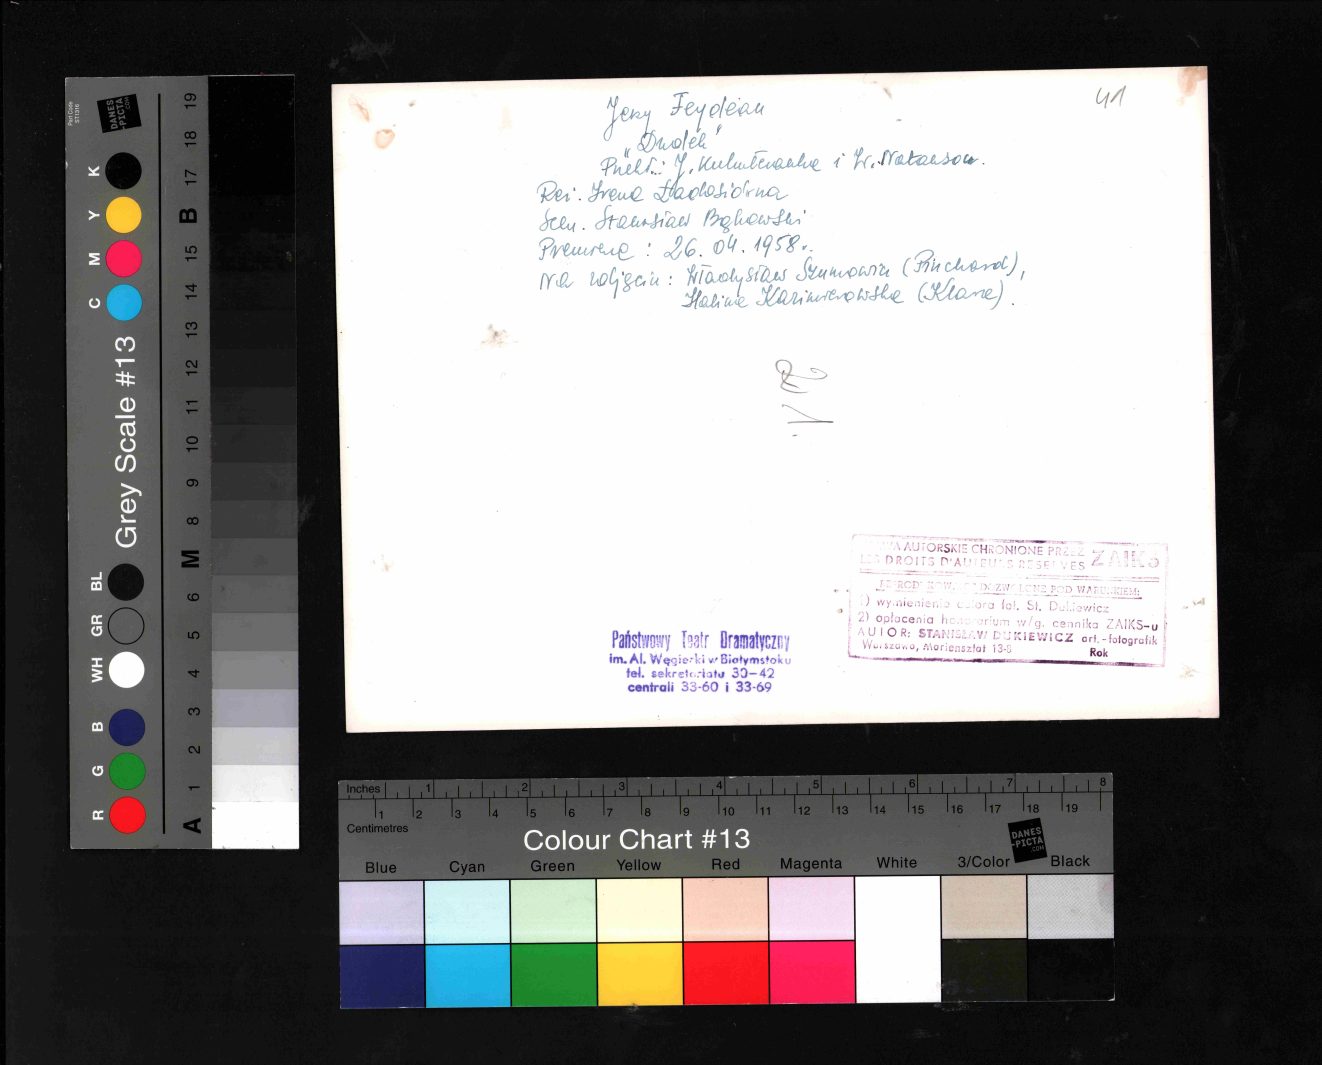 41
Jerzy Feydeau
„Dudek"
Przekł.: J. i W. Natanson.
Reż. Irena Ładosiówna
Scen. Stanisław Bąkowski
Premiera: 26. 04. 1958r.
Na zdjęciu: Władysław Szumowicz (Pinchard),
Halina Kazimierowska (Klara).
AUTORSKIE CHRONIONE PRZEZ ZAIKS
LES DROITS D'AUTEURS RESERVES
DOZWOLONE POD WARUNKIEM:
1) wymienienia autora fot. St. Dukiewicz
2) opłacenia honorarium w/g. cennika ZAIKS-u
AUTOR: STANISŁAW DUKIEWICZ art.-fotografik
Warszawa, Mariensztat 13-8 Rok
Państwowy Teatr Dramatyczny
im. Al. Węgierki w Białymstoku
tel. sekretariatu 30-42
centrali 33-60 i 33-69
Part Code
ST1316
DANES
-PICTA
.COM
Grey Scale #13
R G B WH GR BL C M Y K
A 1 2 3 4 5 6 M 8 9 10 11 12 13 14 15 B 17 18 19
Inches 1 2 3 4 5 6 7 8
1 2 3 4 5 6 7 8 9 10 11 12 13 14 15 16 17 18 19
Centimetres
Colour Chart #13
DANES
-PICTA
.COM
Blue Cyan Green Yellow Red Magenta White 3/Color Black